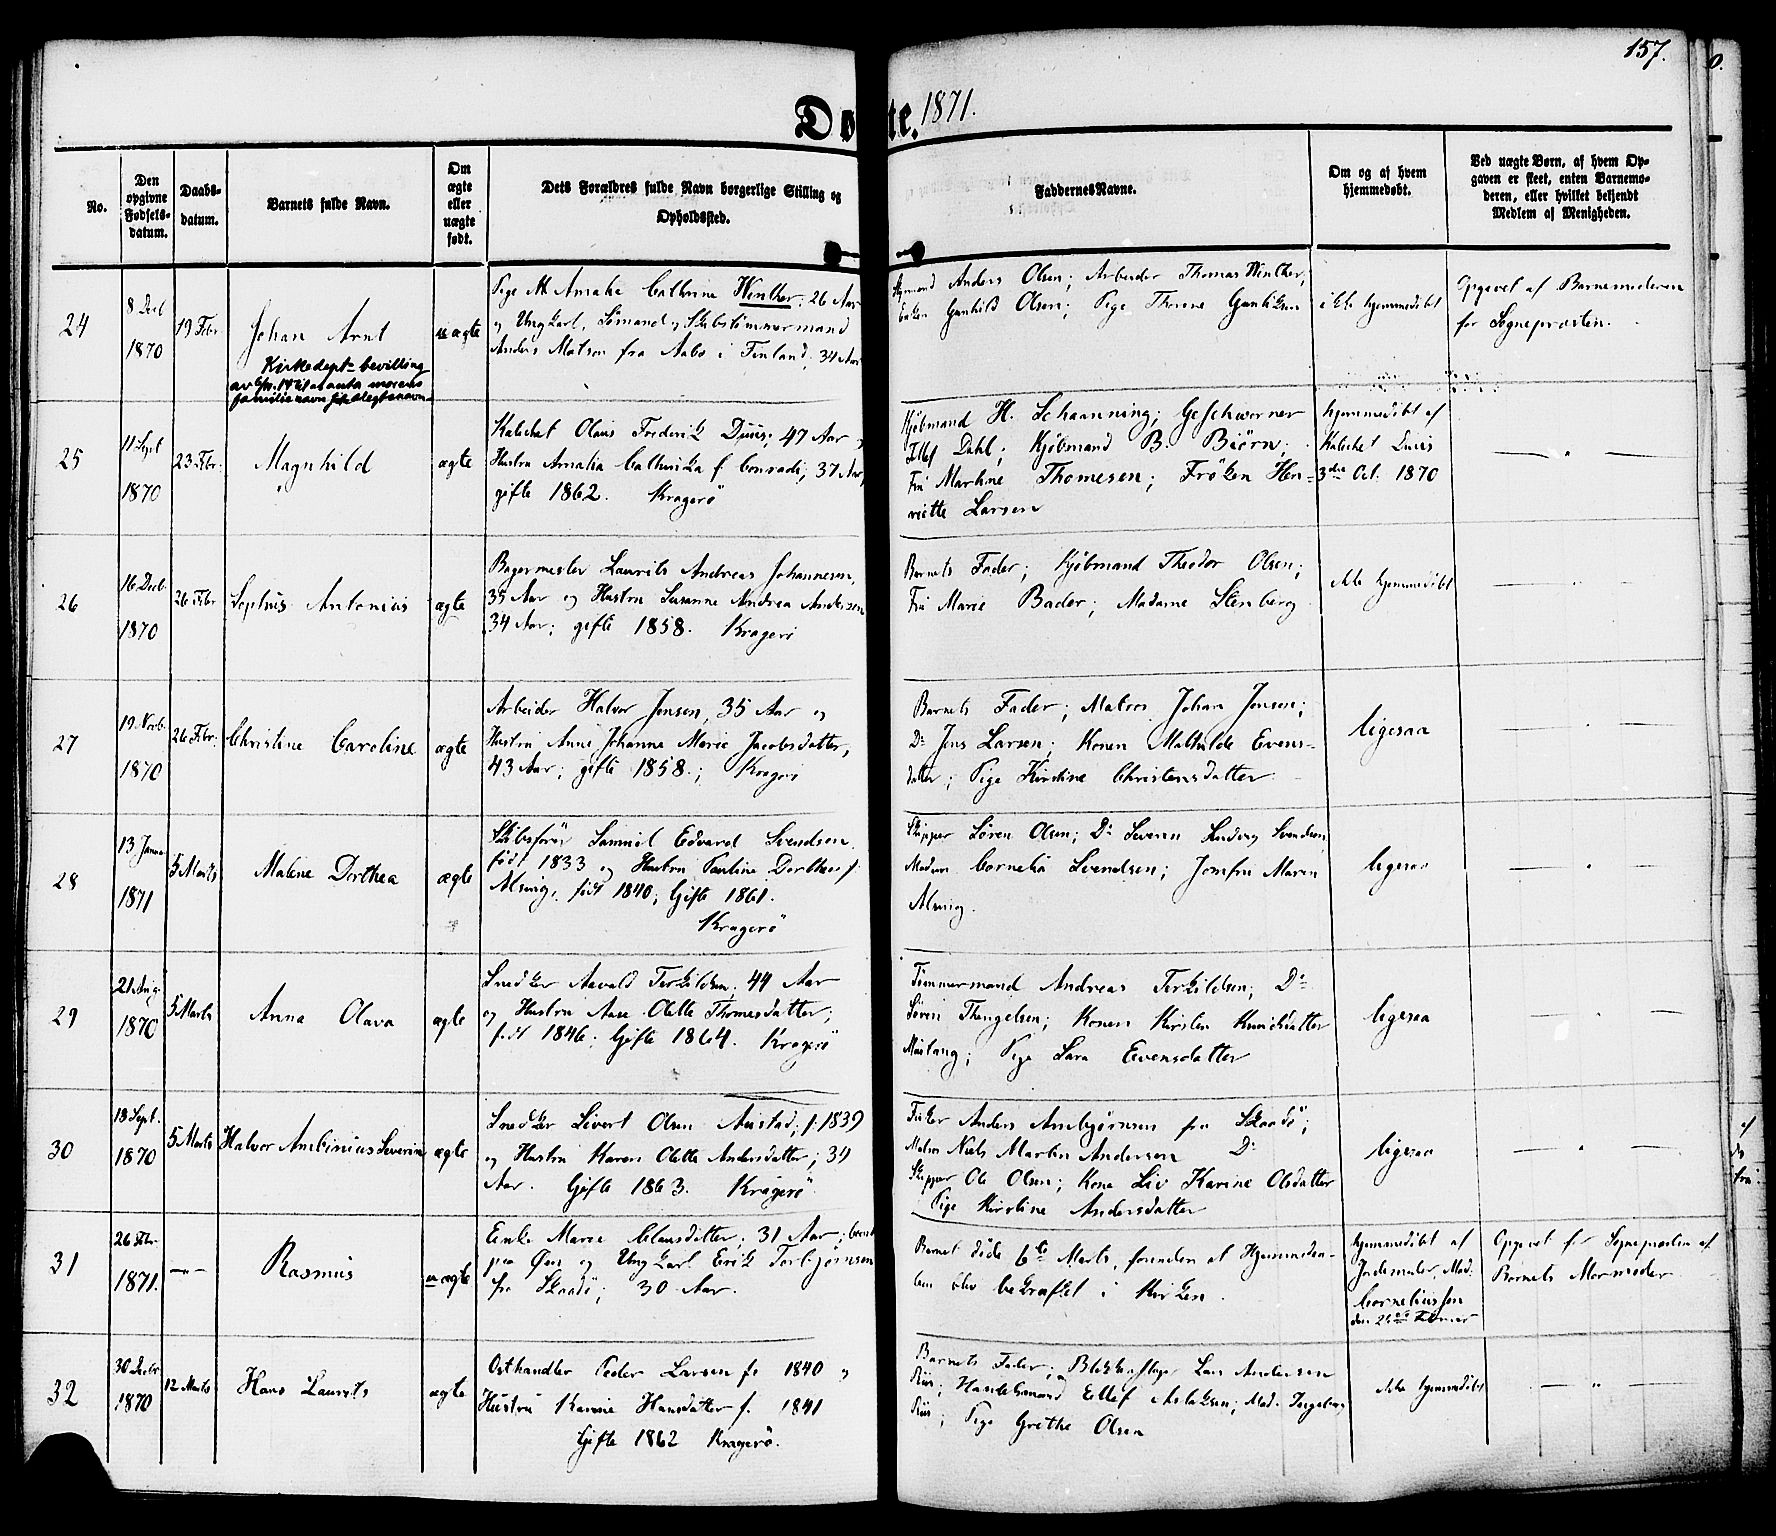 157.
Døbte. 1871.
No.
Den opgivne Fødsels-datum.
Daabs-datum.
Barnets fulde Navn.
Om ægte eller uægte født.
Dets Forældres fulde Navn borgerlige Stilling og Opholdssted.
Faddernes Navne.
Om og af hvem hjemmedøbt.
Ved uægte Børn, af hvem Op-
gaven er skeet, enten Barnemo-
deren, eller hvilket bekjendt
Medlem af Menigheden.
24
8 Decb 1870
19 Febr
Johan Arnt
Kirkedept's bevilling
familienavn slegtsnavn
uægte
Pige Amalia Cathrine Winther, 26 Aar
og Ungkarl, Sømand og Skibstømmermand
Anders Matson fra Aabo i Finland, 34 Aar
Anders Olsen; Arbeider Thomas Winther,
Gunhild Olsen; Pige Thrine
ikke hjemmedøbt
Opgivet af Barnemoderen
for Sognepræsten.
25
11 Sept 1870
23 Febr:
Magnhild
ægte
Katechet Olaus Frederik Duus, 47 Aar og
Hustru Amalia Cathinka f Conradi, 37 Aar,
gifte 1862. Kragerö
Kjöbmand H. Schanning; Geschworner
Ellef Dahl; Kjöbmand B. Biörn;
Fru Martine Thomesen; Fröken Hen-
riette Larsen
hjemmedöbt af
Katechet Duus
3die Oct. 1870
— " —
26
16 Decb 1870
26 Febr
Sophus Antonius
ægte
Bagermester Laurits Andreas Johannesen,
35 Aar og Hustru Susanne Andrea Andersen
34 Aar; gifte 1858. Kragerö
Barnets Fader; Kjöbmand Theodor Olsen;
Fru Marie Bader; Madame Stenberg
ikke hjemmedöbt
— " —
27
19 Novb. 1870
26 Febr:
Christine Caroline
ægte
Arbeider Halvor Jensen, 35 Aar og
Hustru Anne Johanne Marie Jacobsdatter,
43 Aar; gifte 1858.; Kragerö
Barnets Fader; Matros Johan Jensen;
Do Jens Larsen; Konen Mathilde Evens-
datter; Pige Kirstine Christensdatter.
ligesaa
— " —
28
13 Janua 1871
5 Marts
Malene Dorthea
ægte
Skibsförer Samuel Edvard Svendsen
född 1833 og Hustru Pauline Dorthea f.
Alsing, född 1840; Gifte 1861.
Kragerö
Skipper Sören Olsen; Do Severin Ludvig Svendsen
Madam Cornelia Svendsen; Jomfru Maren
Alsing.
ligesaa
— " —
29
21 Aug. 1870
5 Marts
Anna Olava
ægte
Snedker Aavald Terkildsen, 44 Aar
og Hustru Aase Olette Thomesdatter;
født 1846; Gifte 1864. Kragerö
Tömmermand Andreas Terkildsen; Do
Sören Thengelsen; Konen Kirsten
Pige Sara Evensdatter
ligesaa
— " —
30
18 Sept. 1870
5 Marts
Halvor Ambinius Severin
ægte
Snedker Sivert Olsen Austad; f. 1839
og Hustru Karen Olette Andersdatter; 34
Aar. Gifte 1863. Kragerö
Fisker Anders Ambjörnsen fra Skaadö;
Matros Niels Martin Andersen Do
Skipper Ole Olsen; Kone Liv Karine Olsdatter
Pige Kirstine Andersdatter
ligesaa
— " —
31
26 Febr. 1871.
— " —
Rasmus
uægte
Enke Marie Clausdatter; 31 Aar;
paa Öen og Ungkarl Erik Torbjörnsen
fra Skaadö; 30 Aar.
Barnet döde 6te Marts, forinden at Hjemmedaa-
ben blev bekræftet i Kirken.
hjemmedöbt af
Jordemoder, Mad.
Corneliussen
den 26de Februar
Opgivet for Sognepræsten af
Barnets Mormoder
32
30 Decbr 1870
12 Marts
Hans Laurits
ægte
Osthandler Peder Larsen f. 1840 og
Hustru Karine Hansdatter f. 1841
Gifte 1862 Kragerö.
Barnets Fader; Lars Andersen
Riis; Handelsmand Ellef Aslaksen; Mad. Ingeborg
Riis; Pige Grethe Olsen
ikke hjemmedöbt
— " —